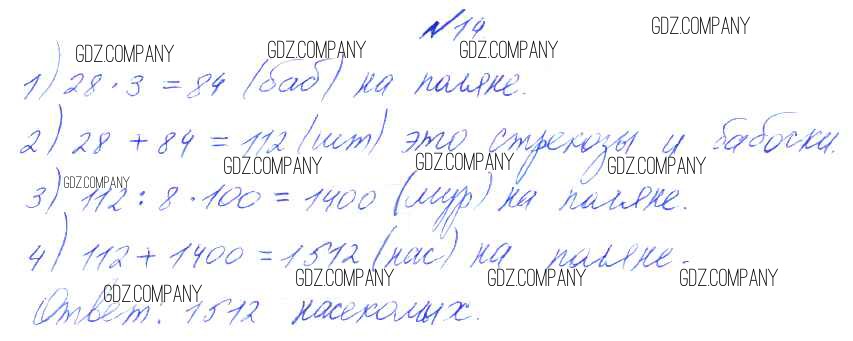 №14
1) 28 · 3 = 84 (баб) на поляне.
2) 28 + 84 = 112 (шт) это стрекозы и бабочки.
3) 112 : 8 · 100 = 1400 (мур) на поляне.
4) 112 + 1400 = 1512 (нас) на поляне.
Ответ: 1512 насекомых.
GDZ.COMPANY
GDZ.COMPANY
GDZ.COMPANY
GDZ.COMPANY
GDZ.COMPANY
GDZ.COMPANY
GDZ.COMPANY
GDZ.COMPANY
GDZ.COMPANY
GDZ.COMPANY
GDZ.COMPANY
GDZ.COMPANY